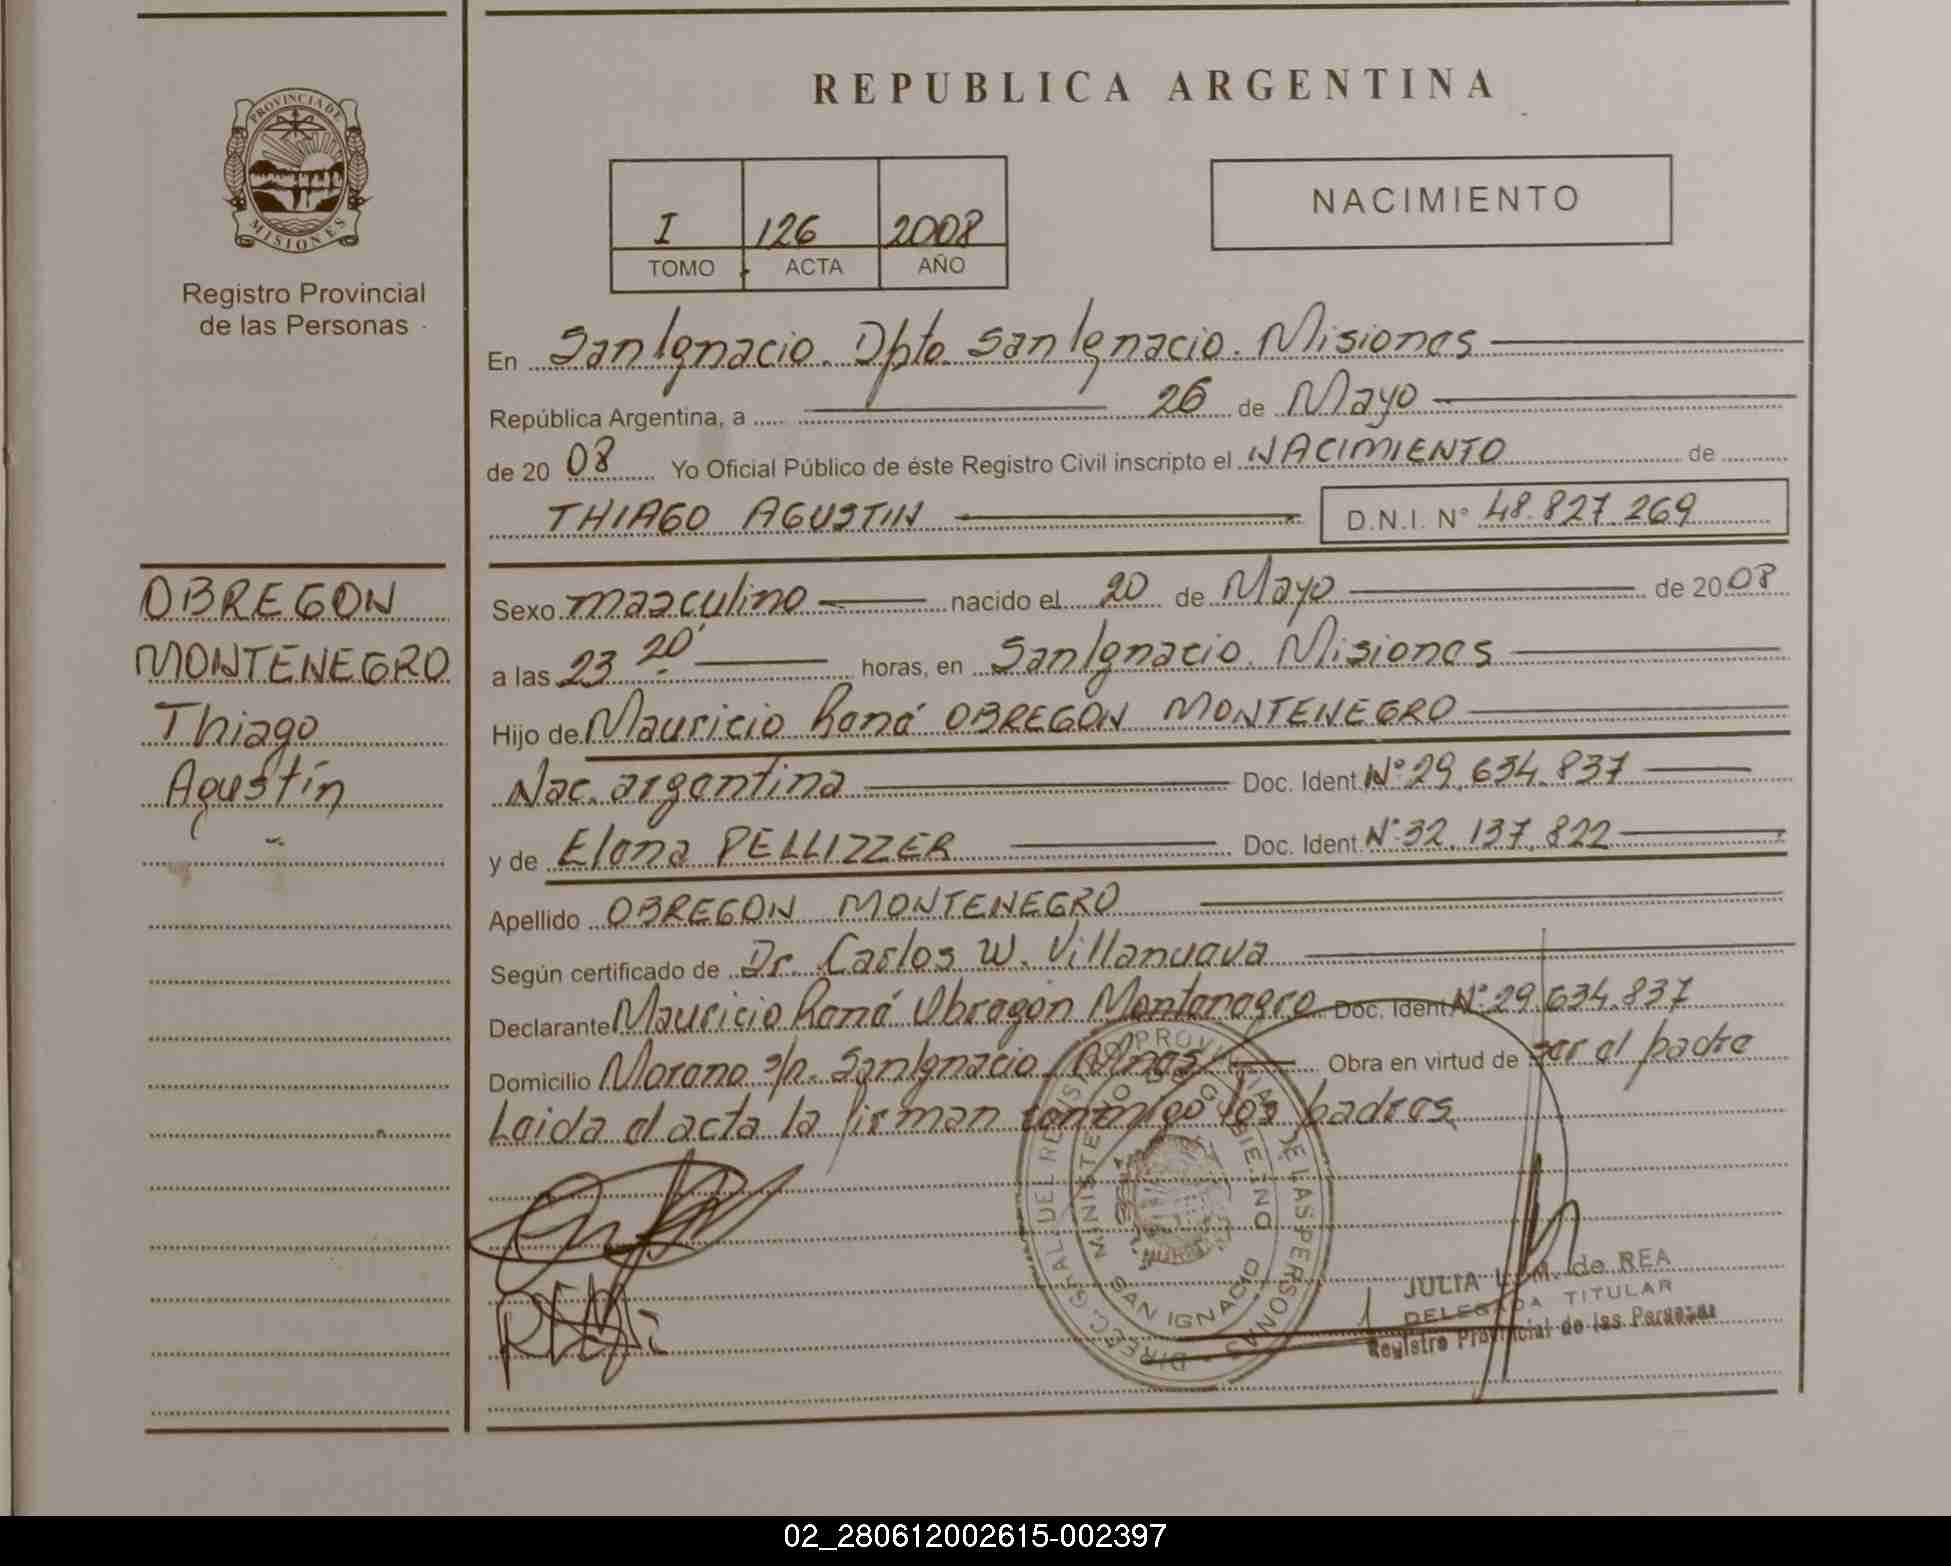 REPUBLICA ARGENTINA
PROVINCIA DE
MISIONES
Registro Provincial
de las Personas
I 126 2008
TOMO ACTA AÑO
NACIMIENTO
En San Ignacio. Dpto. San Ignacio. Misiones
República Argentina, a 26 de Mayo
de 20 08 Yo Oficial Público de éste Registro Civil inscripto el NACIMIENTO de
THIAGO AGUSTIN D.N.I. N° 48.827.269
OBREGON
MONTENEGRO
Thiago
Agustín
Sexo masculino nacido el 20 de Mayo de 20 08
a las 23 20' horas, en San Ignacio. Misiones
Hijo de Mauricio René OBREGON MONTENEGRO
Nac. argentina Doc. Ident. N° 29.634.837
y de Elena PELLIZZER Doc. Ident. N° 32.137.822
Apellido OBREGON MONTENEGRO
Según certificado de Dr. Carlos W. Villanueva
Declarante Mauricio René Obregón Montenegro Doc. Ident. N° 29.634.837
Domicilio Moreno s/n. San Ignacio Mnes Obra en virtud de ser el padre
Leida el acta la firman conmigo los padres
DIREC. GRAL. DEL REGISTRO PROVINCIAL DE LAS PERSONAS
MINISTERIO DE GOBIERNO
SAN IGNACIO
JULIA L. M. de REA
DELEGADA TITULAR
Registro Provincial de las Personas
02_280612002615-002397